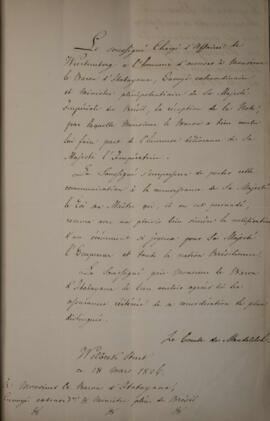 Le Soussigné Chargé d'Affaires de
Wurtemberg a l'honneur d'accuser à Monsieur
le Baron d'Itabayana, Envoyé extraordinaire
et Ministre plénipotentiaire de Sa Majesté
Impériale du Brésil, la réception de la Note,
par laquelle Monsieur le Baron a bien voulu
lui faire part de l'heureuse délivrance de Sa
Majesté l'Impératrice.
Le Soussigné s'empressera de porter cette
communication à la connaissance de Sa Majesté
le Roi son Maître qui, il en est persuadé,
recevra avec un plaisir bien sincère la notification
d'un événement si joyeux pour Sa Majesté
l'Empereur et toute la nation Brésilienne.
Le Soussigné prie Monsieur le Baron
d'Itabayana de bien vouloir agréer ici les
assurances réitérées de sa considération la plus
distinguée.
Le Comte de Mandelsloh
Street
ce 18 mars 1826.
à Monsieur le Baron d'Itabayana,
Envoyé extraord. et Ministre plén. du Brésil